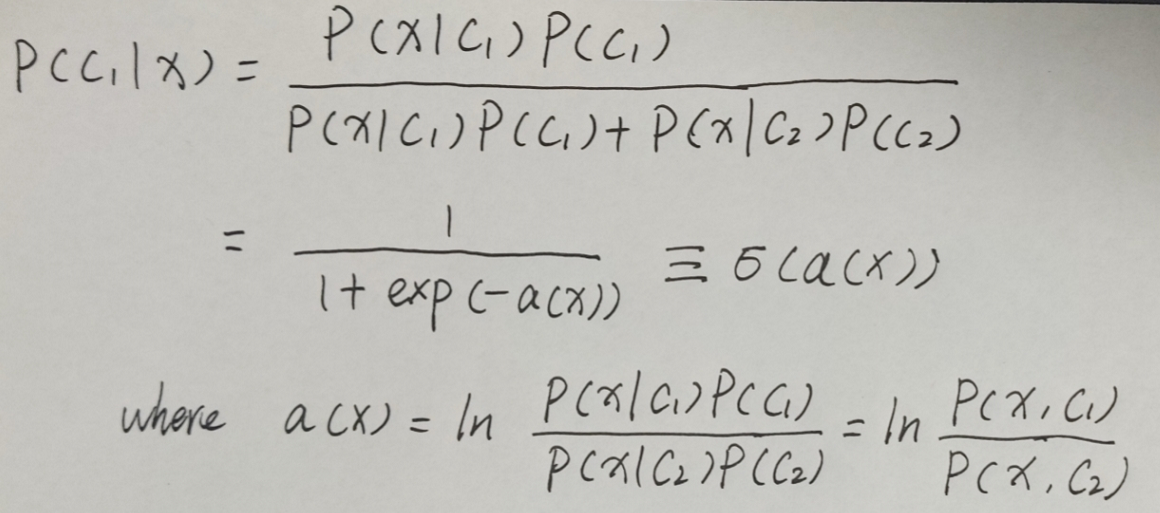 P(C₁|x) = P(x|C₁)P(C₁) / P(x|C₁)P(C₁) + P(x|C₂)P(C₂)
= 1 / 1 + exp(-a(x)) ≡ σ(a(x))
where a(x) = ln P(x|C₁)P(C₁) / P(x|C₂)P(C₂) = ln P(x, C₁) / P(x, C₂)